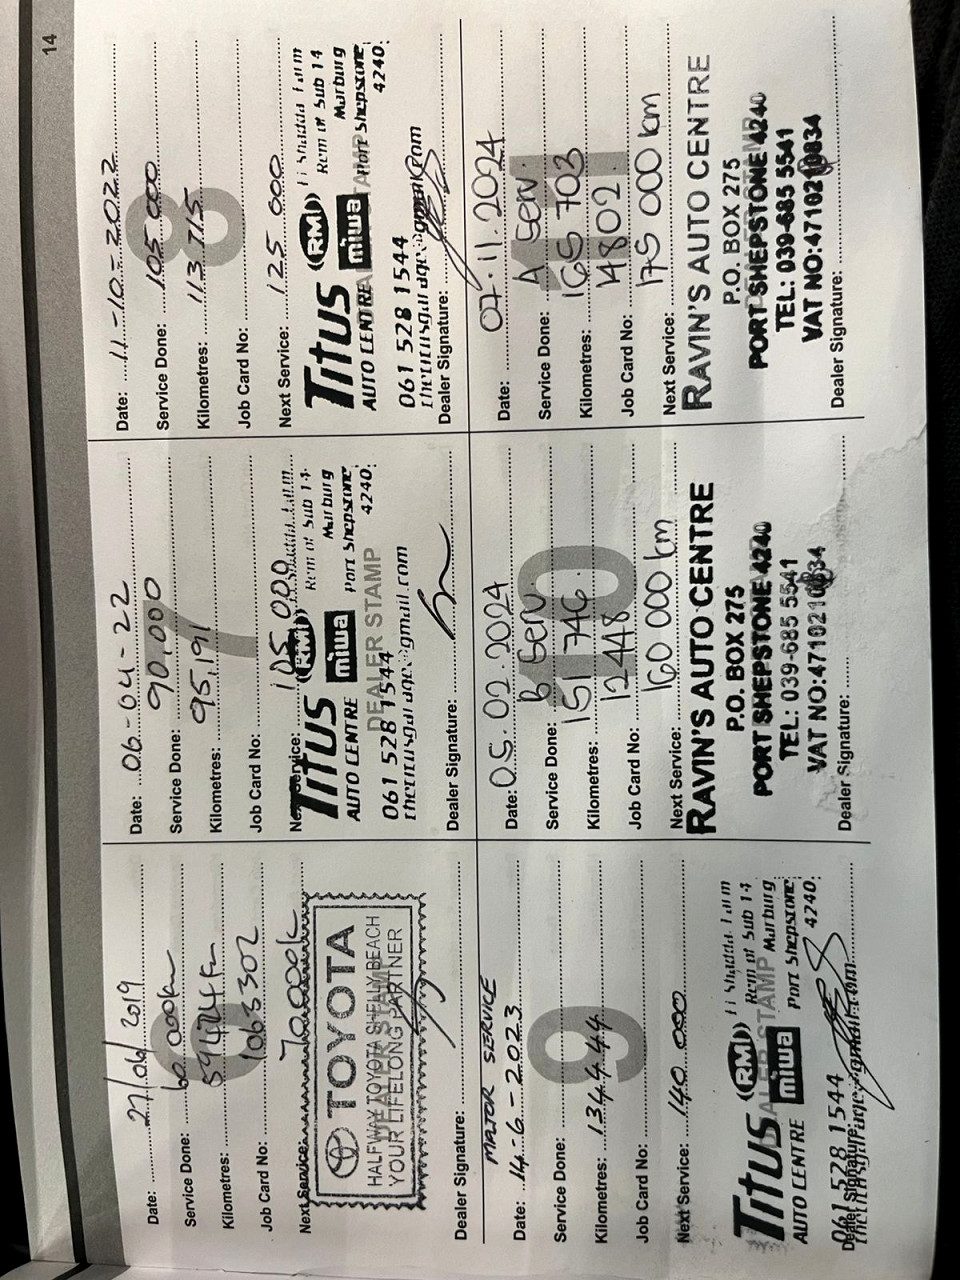 14
Date: 27/06/2019
Service Done: 60 000km
6
Kilometres:
Job Card No: 1063302
Next Service: 70000k
TOYOTA
HALFWAY TOYOTA SHELLY BEACH
YOUR LIFELONG PARTNER
DEALER STAMP
Dealer Signature:
Date: 06-04-22
Service Done: 90,000
7
Kilometres: 95,191
Job Card No:
Next Service: 105 000
Titus
AUTO CENTRE
RMI
miwa
Rem of Sub 14
Marburg
Port Shepstone
4240
DEALER STAMP
061 528 1544
Dealer Signature:
Date: 11-10-2022
Service Done: 105 000
8
Kilometres: 113 715
Job Card No:
Next Service: 125 000
Titus
AUTO CENTRE
RMI
miwa
Rem of Sub 14
Marburg
Port Shepstone
4240
061 528 1544
Dealer Signature:
MAJOR SERVICE
Date: 14-6-2023
Service Done:
9
Kilometres: 134444
Job Card No:
Next Service: 140 000
Titus
AUTO CENTRE
RMI
miwa
Rem of Sub 14
Marburg
Port Shepstone
4240
061 528 1544
Dealer Signature:
Date: 05.02.2024
Service Done: B Serv.
10
Kilometres: 151 746
Job Card No: 12448
Next Service: 160 000 km
RAVIN'S AUTO CENTRE
P.O. BOX 275
PORT SHEPSTONE 4240
TEL: 039-685 5541
VAT NO:4710210834
Dealer Signature:
Date: 07.11.2024
Service Done: A Serv.
11
Kilometres: 165 703
Job Card No: 14802
Next Service: 175 000 km
RAVIN'S AUTO CENTRE
P.O. BOX 275
PORT SHEPSTONE 4240
TEL: 039-685 5541
VAT NO:4710210834
Dealer Signature: